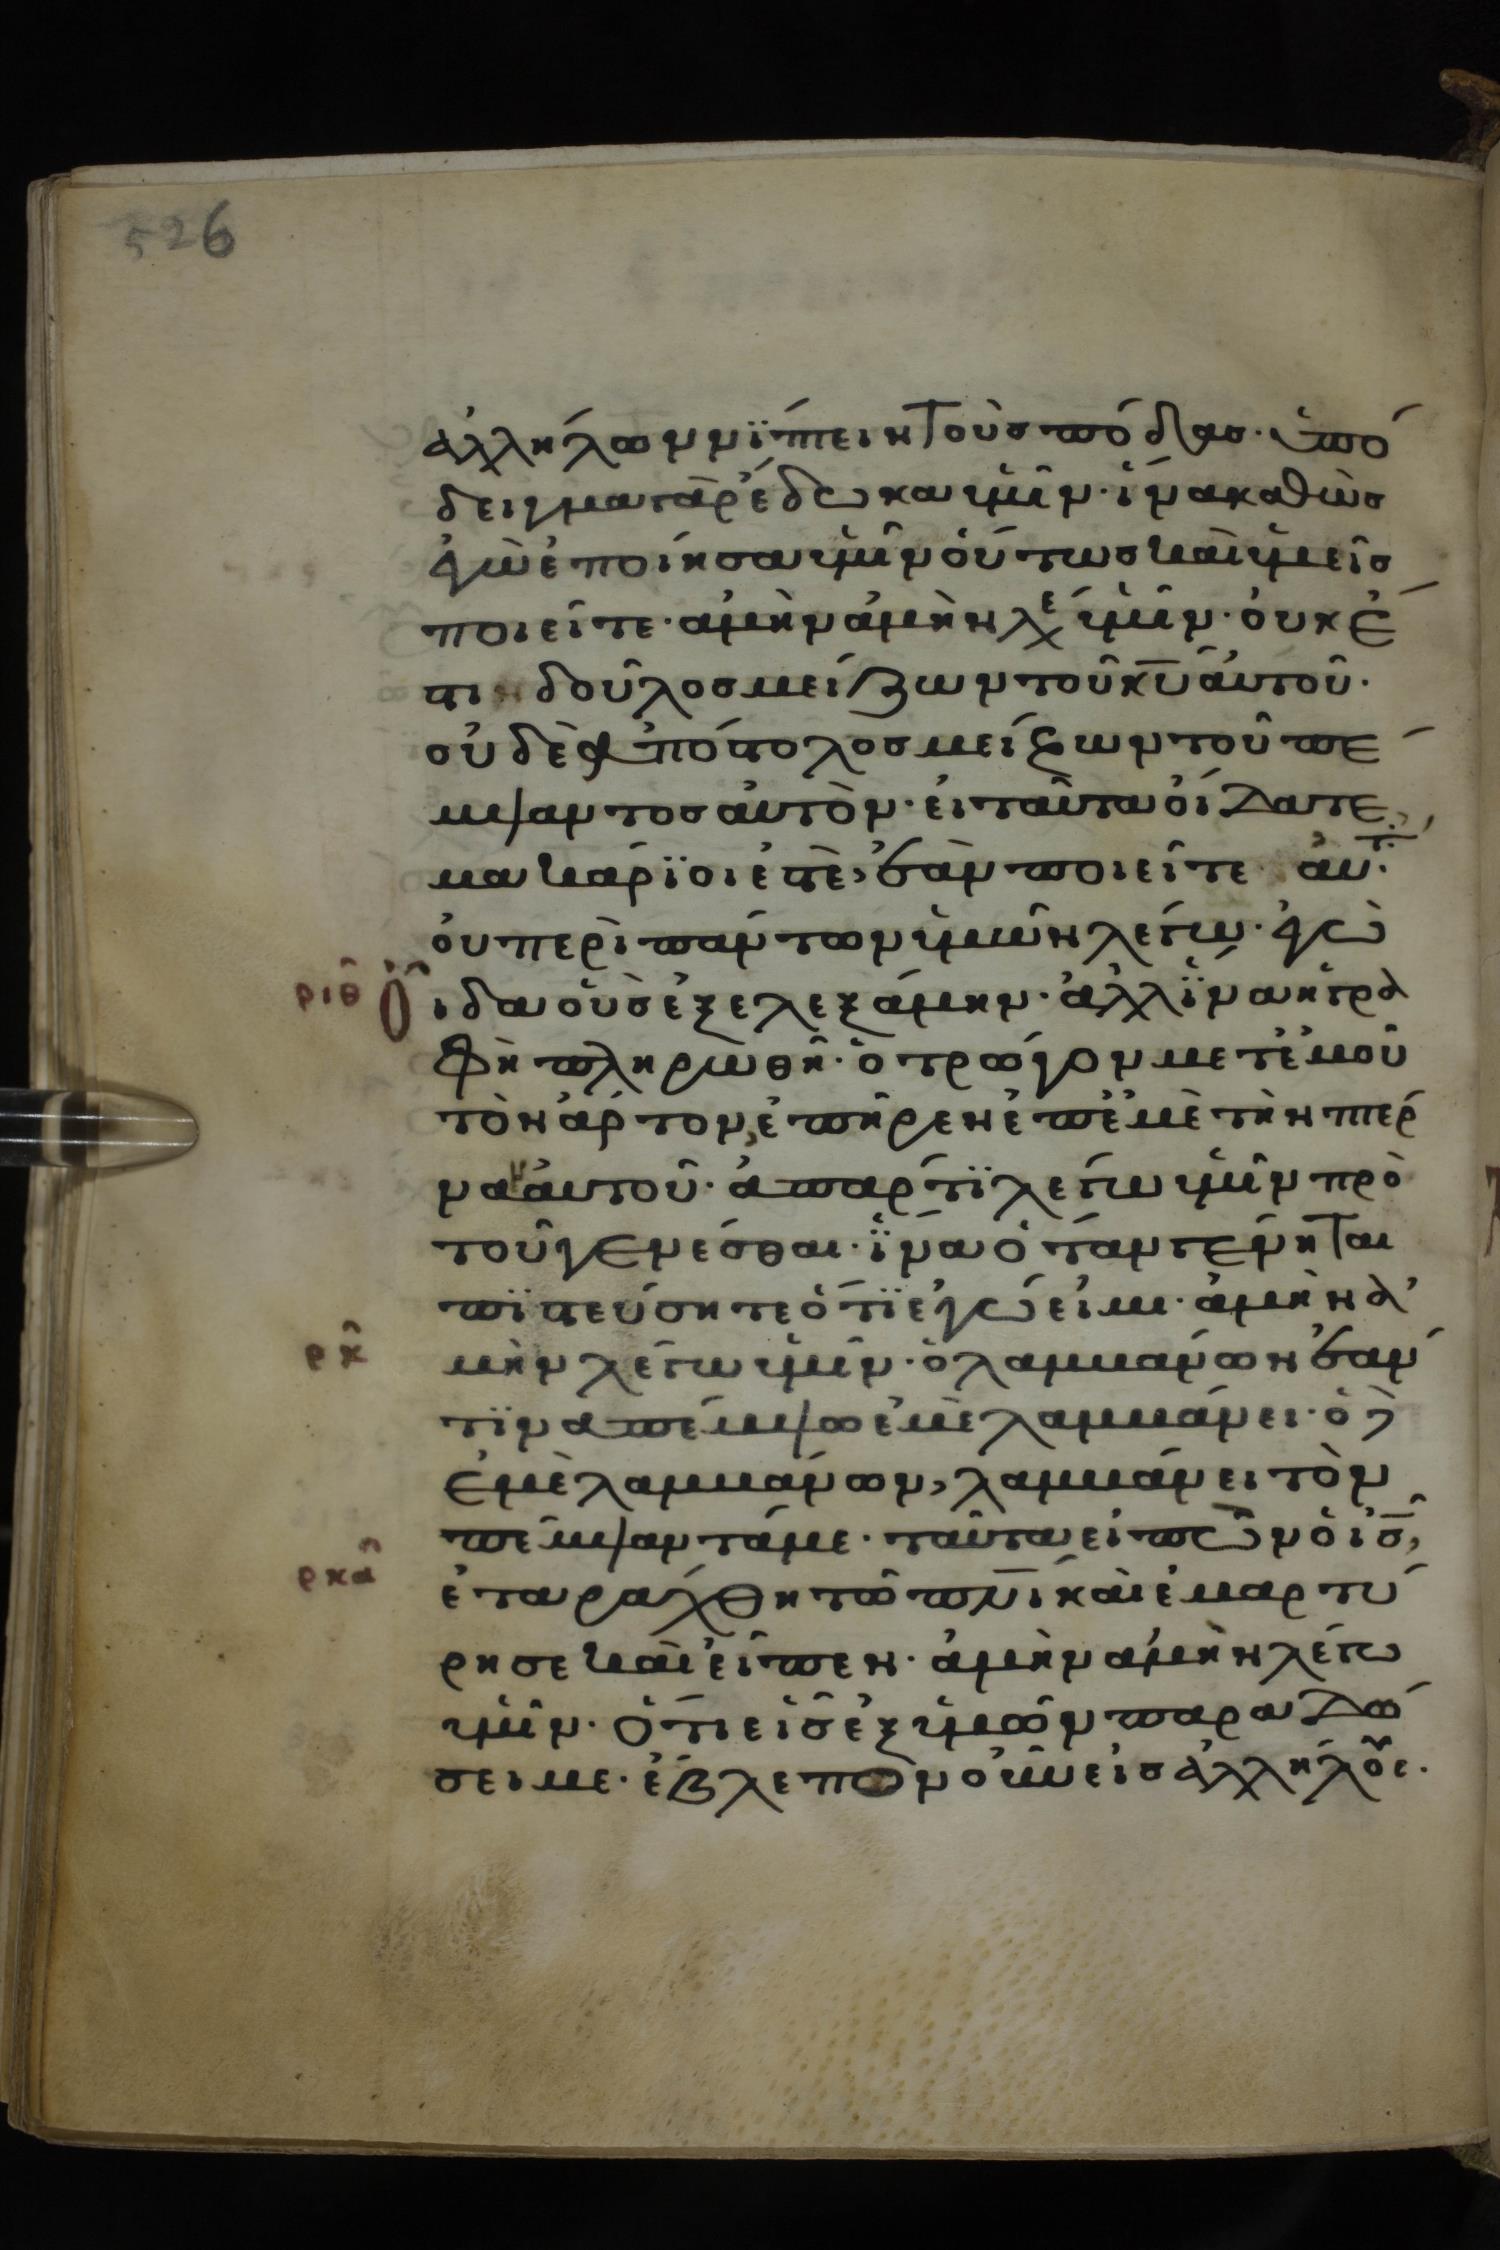 526
ἀλλήλων νίπτειν τοὺς πόδας· ὑπό
δειγμα γὰρ ἔδωκα ὑμῖν· ἵνα καθὼς
ἐγὼ ἐποίησα ὑμῖν οὕτως καὶ ὑμεῖς
ποιεῖτε· ἀμὴν ἀμὴν λέ ὑμῖν· οὐκ ἔ
στι δοῦλος μείζων τοῦ κ̅υ̅ αὐτοῦ·
οὐδὲ ἀπόστολος μείζων τοῦ πέ
μψαντος αὐτὸν· εἰ ταῦτα οἴδατε
μακάριοί ἐστὲ, ἐὰν ποιεῖτε αὐτ·
οὐ περὶ πάντων ὑμῶν λέγω· ἐγὼ
ριθ οἶδα οὓς ἐξελεξάμην· ἀλλ ἵνα ἡ γρα
φὴ πληρωθῆ· ὁ τρώγον μετ ἐμοῦ
τὸν ἄρτον, ἐπῆρεν ἐπ ἐμὲ τὴν πτέρ
ναν αὐτοῦ· ἀπάρτι λέγω ὑμῖν πρὸ
τοῦ γενέσθαι· ἵνα ὅταν γένηται
πιστεύσητε ὅτι ἐγώ εἰμι· ἀμὴν ἀ
ρκ μὴν λέγω ὑμῖν· ὁ λαμβάνων ἐάν
τινα πέμψω ἐμὲ λαμβάνει· ὁ δ
ἐμὲ λαμβάνων, λαμβάνει τὸν
πέμψαντά με· ταῦτα εἰπὼν ὁ ι̅σ̅,
ρκα ἐταράχθη τῶ π̅ν̅ι̅ καὶ ἐμαρτύ
ρησε καὶ εἶπεν· ἀμὴν ἀμὴν λέγω
ὑμῖν· ὅτι εἷς ἐξ ὑμῶν παραδώ
σει με· ἔβλεπον οὖν εἰς ἀλλήλους·